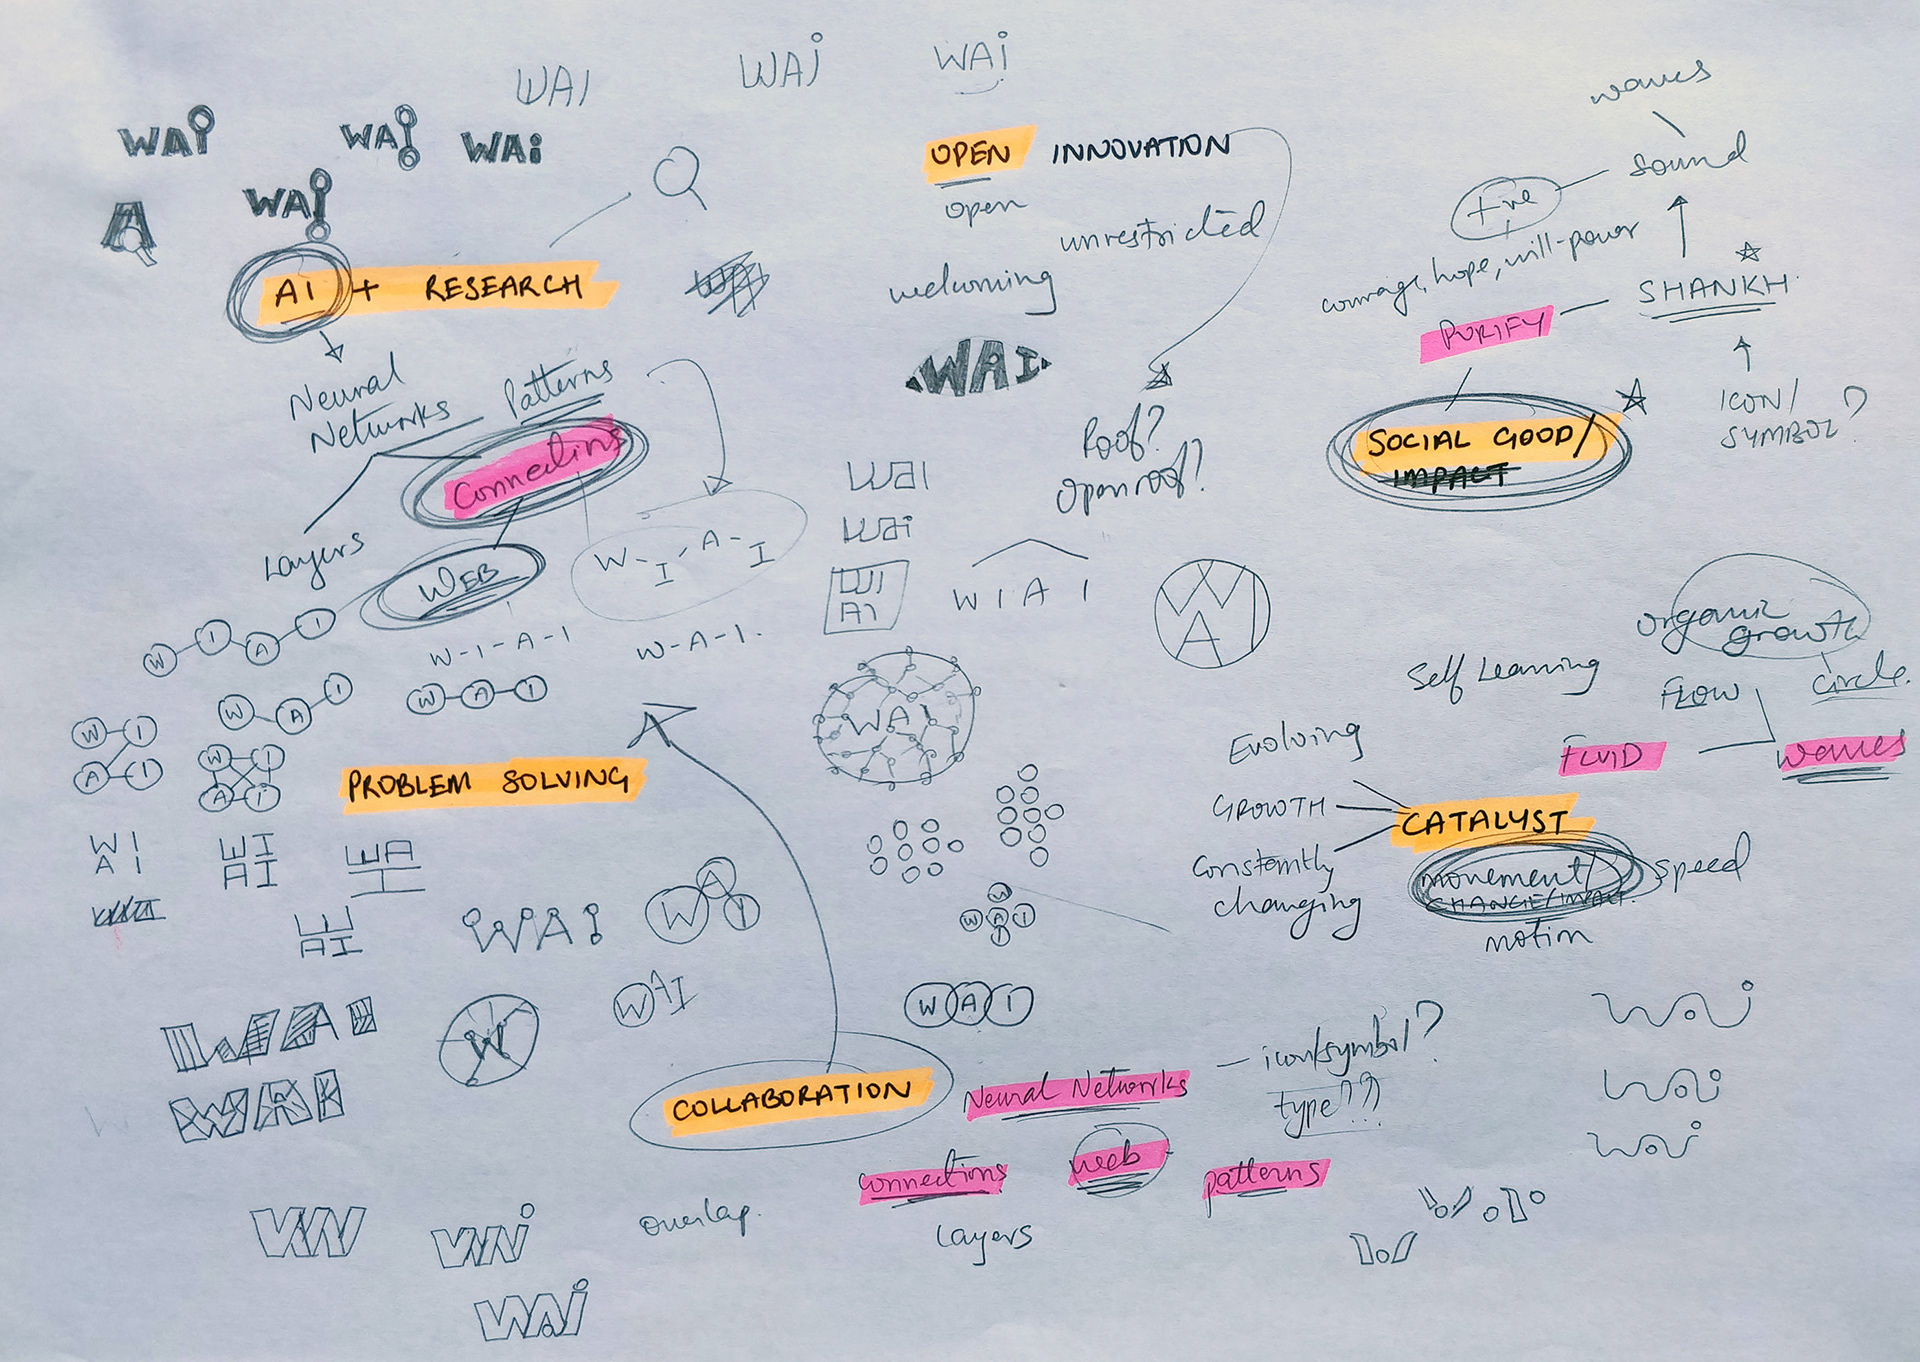 WAI
WAJ
WAi
waves
WAI
WAI
WAi
OPEN INNOVATION
sound
+ive
WAI
A
open
unrestricted
courage, hope, will-power
AI + RESEARCH
welcoming
SHANKH.
PURIFY
Neural
Networks
Patterns
WAI
Connections
Roof?
Open roof?
ICON/
SYMBOL?
SOCIAL GOOD/
IMPACT
WAI
WAi
Layers
WEB
W-I-A-I
WI
AI
W I A I
W
A I
W I A I
W-I-A-I
W-A-I.
organic
growth
Self Learning
FLOW
circle.
W A I
W A I
W I
A I
WAI
W I
A I
Evolving
FLUID
waves
PROBLEM SOLVING
GROWTH
CATALYST
Constantly
changing
movement/
CHANGE/IMPACT.
speed
motion
W I
A I
WI
AI
WA
I
W
AI
WAI
W A I
W
W A I
I
WAI
W
WAI
W A I
WAI
wai
COLLABORATION
Neural Networks
– icon/symbol?
type???
WAI
wai
wai
connections
web
patterns
overlap.
Layers
WAI
WAi
WAi